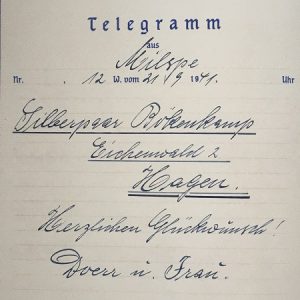 Telegramm
aus
Milspe
Nr. 12 W. vom 21/9 1941. Uhr
Silberpaar Bökenkamp
Eichenwald 2
Hagen.
Herzlichen Glückwunsch!
Doerr u. Frau.